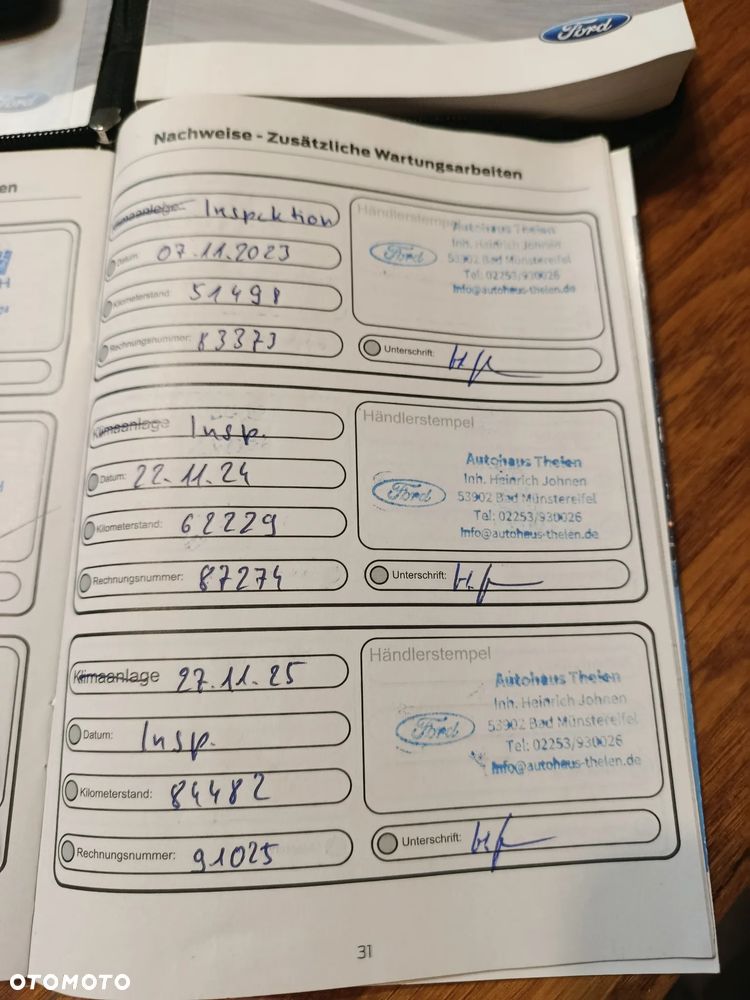 Ford
Ford
en
Nachweise - Zusätzliche Wartungsarbeiten
Klimaanlage Inspektion
Datum: 07.11.2023
Kilometerstand: 51498
Rechnungsnummer: 83373
Händlerstempel
Ford
Autohaus Theien
Inh. Heinrich Johnen
53902 Bad Münstereifel
Tel: 02253/930026
Info@autohaus-thelen.de
Unterschrift:
Klimaanlage Insp.
Datum: 22.11.24
Kilometerstand: 62229
Rechnungsnummer: 87274
Händlerstempel
Ford
Autohaus Thelen
Inh. Heinrich Johnen
53902 Bad Münstereifel
Tel: 02253/930026
Info@autohaus-thelen.de
Unterschrift:
Klimaanlage 27.11.25
Datum: Insp.
Kilometerstand: 84482
Rechnungsnummer: 91025
Händlerstempel
Ford
Autohaus Thelen
Inh. Heinrich Johnen
53902 Bad Münstereifel
Tel: 02253/930026
Info@autohaus-thelen.de
Unterschrift:
31
OTOMOTO